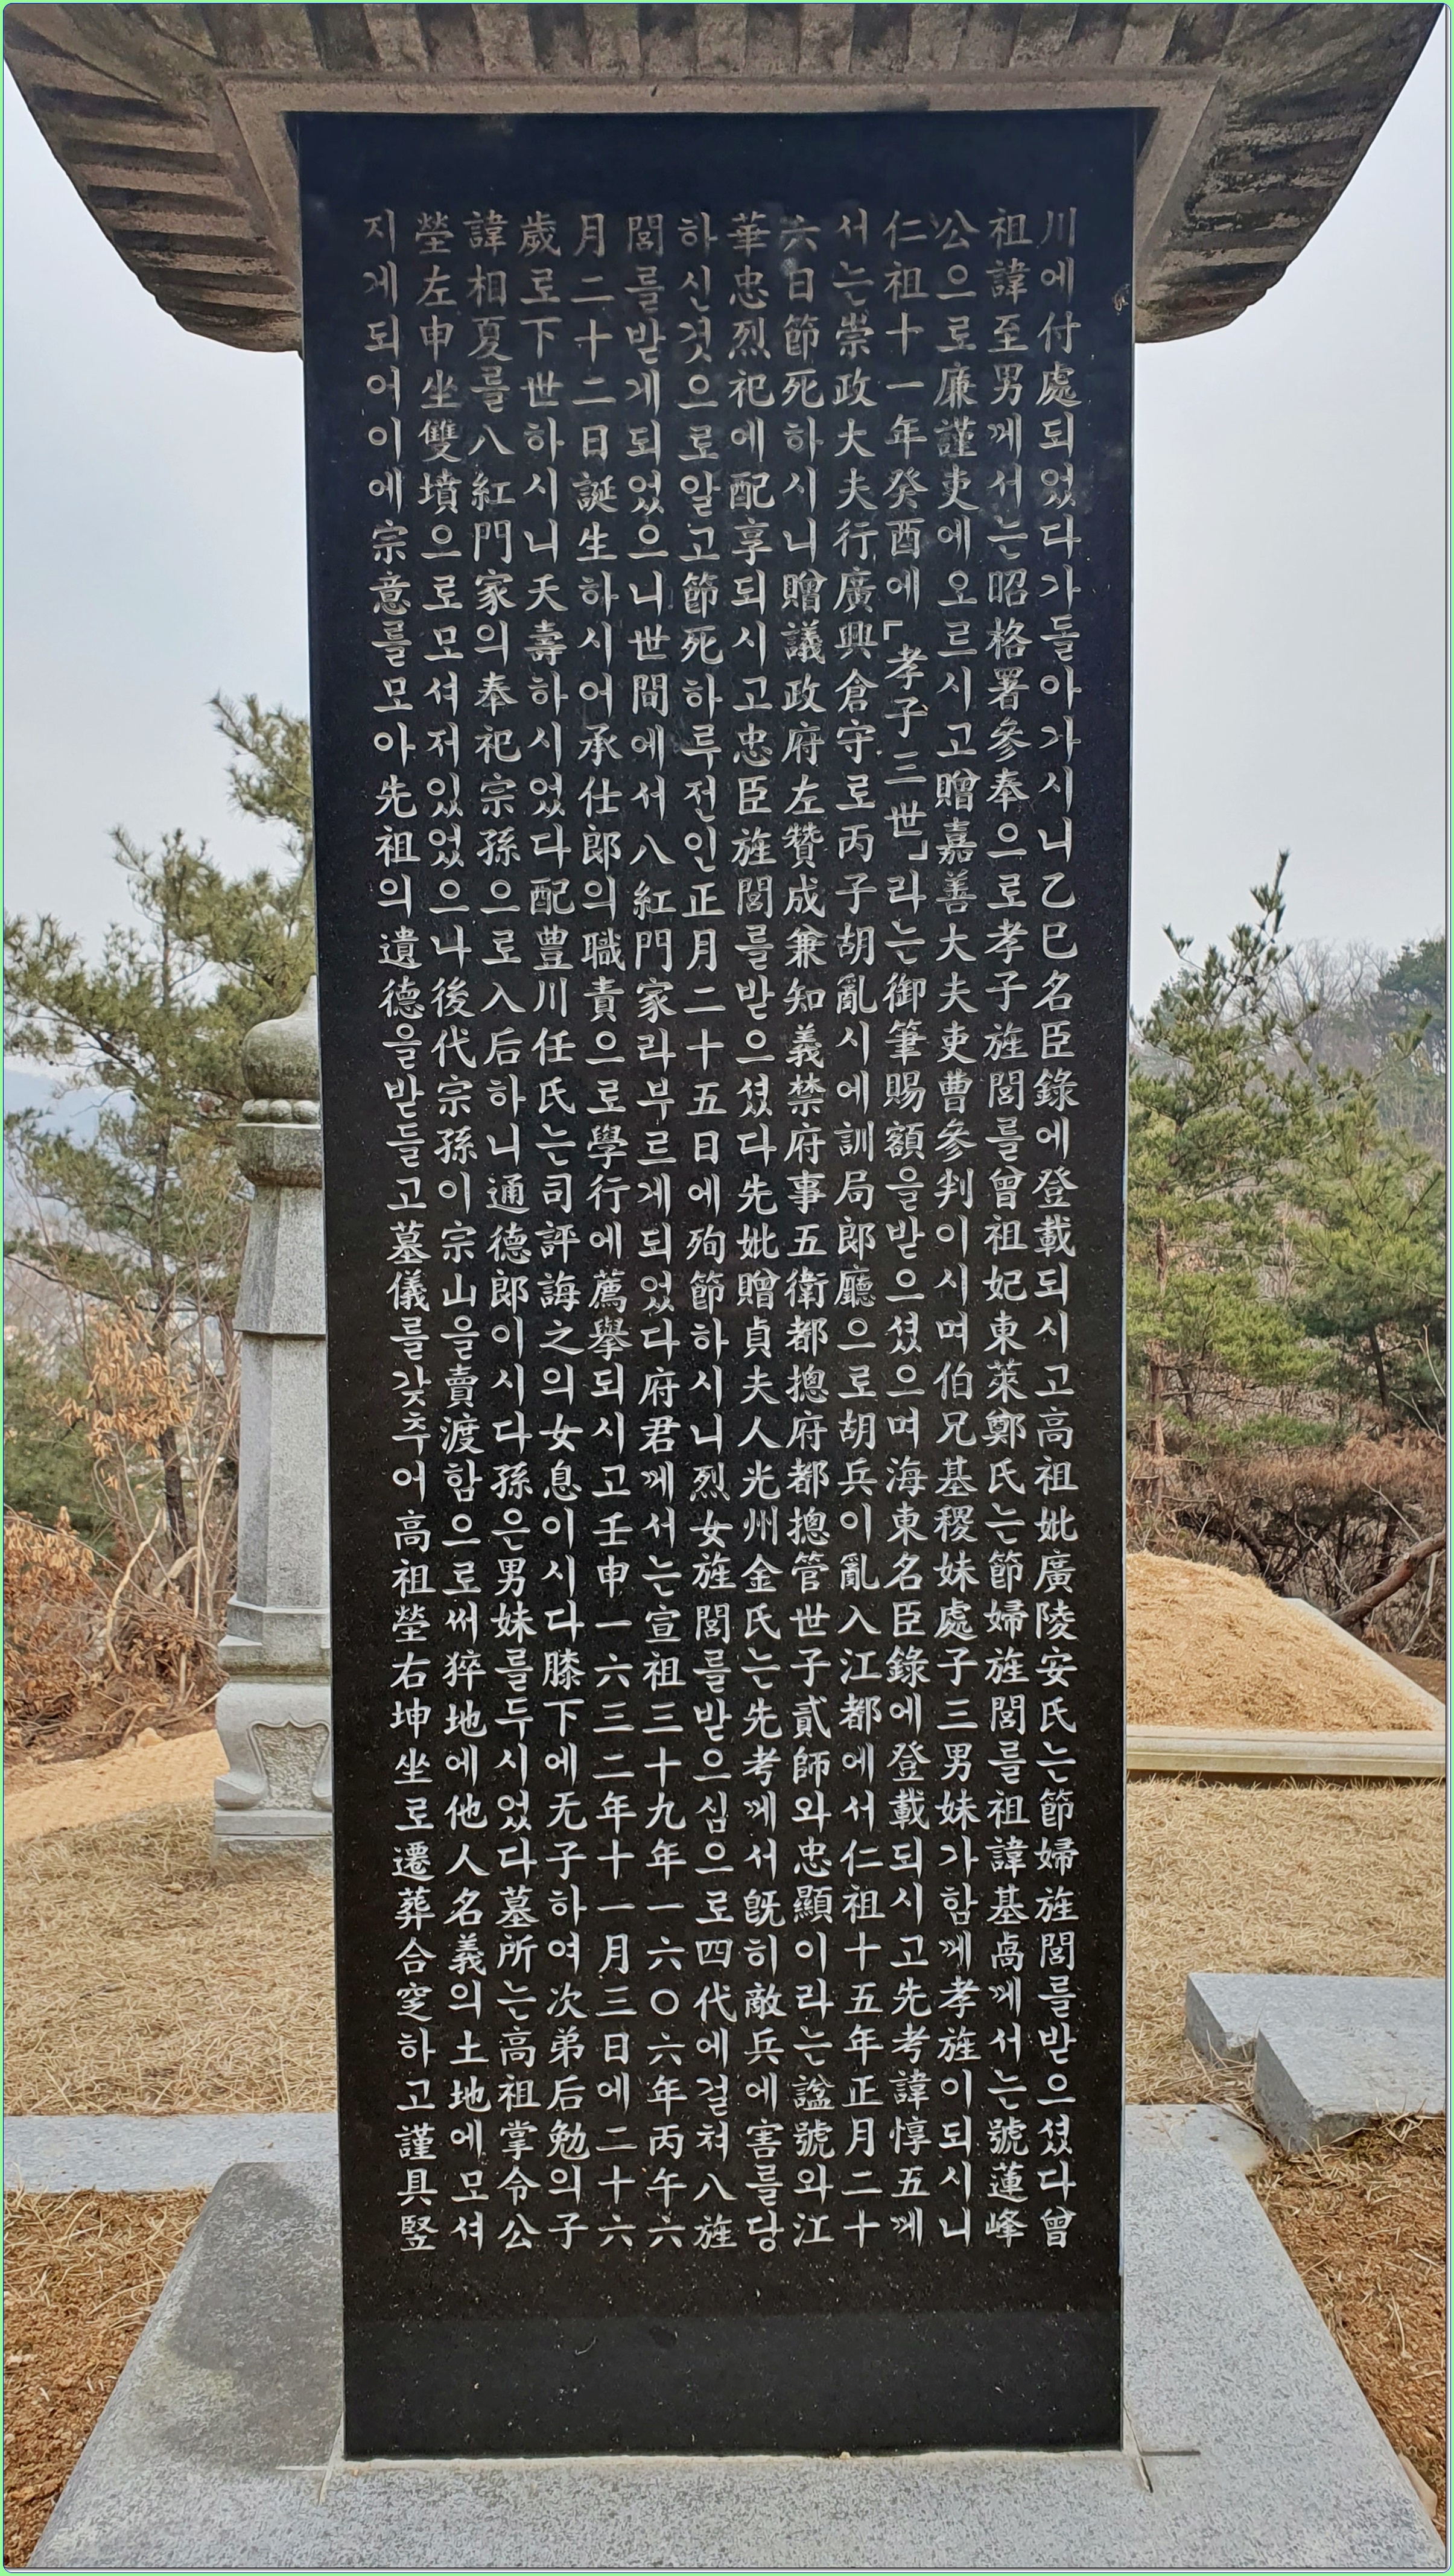 川에付處되었다가돌아가시니乙巳名臣錄에登載되시고高祖妣廣陵安氏는節婦旌閭를받으셨다曾
祖諱至男께서는昭格署參奉으로孝子旌閭를曾祖妃東萊鄭氏는節婦旌閭를祖諱基卨께서는號蓮峰
公으로廉謹吏에오르시고贈嘉善大夫吏曹參判이시며伯兄基稷妹處子三男妹가함께孝旌이되시니
仁祖十一年癸酉에「孝子三世」라는御筆賜額을받으셨으며海東名臣錄에登載되시고先考諱惇五께
서는崇政大夫行廣興倉守로丙子胡亂시에訓局郎廳으로胡兵이亂入江都에서仁祖十五年正月二十
六日節死하시니贈議政府左贊成兼知義禁府事五衛都摠府都摠管世子貳師와忠顯이라는諡號와江
華忠烈祀에配享되시고忠臣旌閭를받으셨다先妣贈貞夫人光州金氏는先考께서旣히敵兵에害를당
하신것으로알고節死하루전인正月二十五日에殉節하시니烈女旌閭를받으심으로四代에걸쳐八旌
閭를받게되었으니世間에서八紅門家라부르게되었다府君께서는宣祖三十九年一六〇六年丙午六
月二十二日誕生하시어承仕郎의職責으로學行에薦擧되시고壬申一六三二年十一月三日에二十六
歲로下世하시니夭壽하시었다配豊川任氏는司評誨之의女息이시다膝下에无子하여次弟后勉의子
諱相夏를八紅門家의奉祀宗孫으로入后하니通德郎이시다孫은男妹를두시었다墓所는高祖掌令公
塋左申坐雙墳으로모셔저있었으나後代宗孫이宗山을賣渡함으로써猝地에他人名義의土地에모셔
지게되어이에宗意를모아先祖의遺德을받들고墓儀를갖추어高祖塋右坤坐로遷葬合窆하고謹具竪